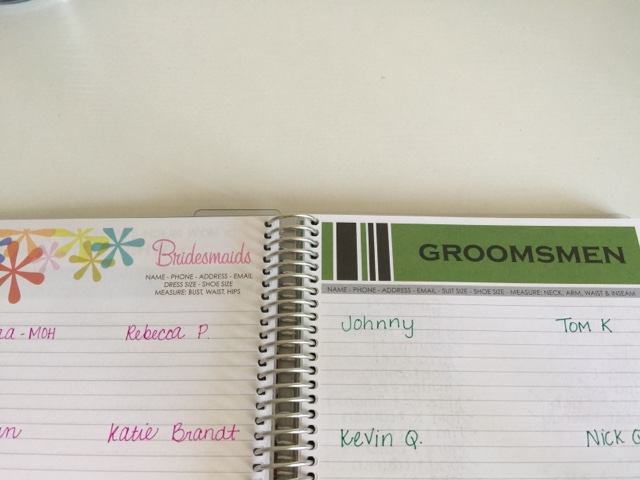 Bridesmaids
NAME - PHONE - ADDRESS - EMAIL
DRESS SIZE - SHOE SIZE
MEASURE: BUST, WAIST, HIPS
- MOH Rebecca P.
Katie Brandt
GROOMSMEN
NAME - PHONE - ADDRESS - EMAIL - SUIT SIZE - SHOE SIZE - MEASURE: NECK, ARM, WAIST & INSEAM
Johnny Tom K
Kevin Q. Nick